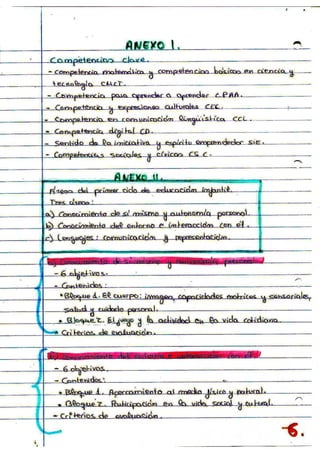 ANEXO I.
Competencias clave.
- Competencia matemática y competencias básicas en ciencia y
tecnología CMCT.
- Competencia para aprender a aprender CPAA.
- Competencia y expresiones culturales CEC.
- Competencia en comunicación lingüística CCL.
- Competencia digital CD.
- Sentido de la iniciativa y espíritu emprendedor SIE.
- Competencias sociales y cívicas CSC.
ANEXO II.
Áreas del primer ciclo de educación infantil.
Tres áreas:
a) Conocimiento de sí mismo y autonomía personal.
b) Conocimiento del entorno e interacción con él.
c) Lenguajes: comunicación y representación.
a) Conocimiento de sí mismo y autonomía personal
- 6 objetivos.
- Contenidos:
• Bloque 1. El cuerpo: imagen, capacidades motrices y sensoriales,
salud y cuidado personal.
• Bloque 2. El juego y la actividad en la vida cotidiana.
- Criterios de evaluación.
b) Conocimiento del entorno e interacción con él
- 6 objetivos.
- Contenidos:
• Bloque 1. Acercamiento al medio físico y natural.
• Bloque 2. Participación en la vida social y cultural.
- Criterios de evaluación.
6.